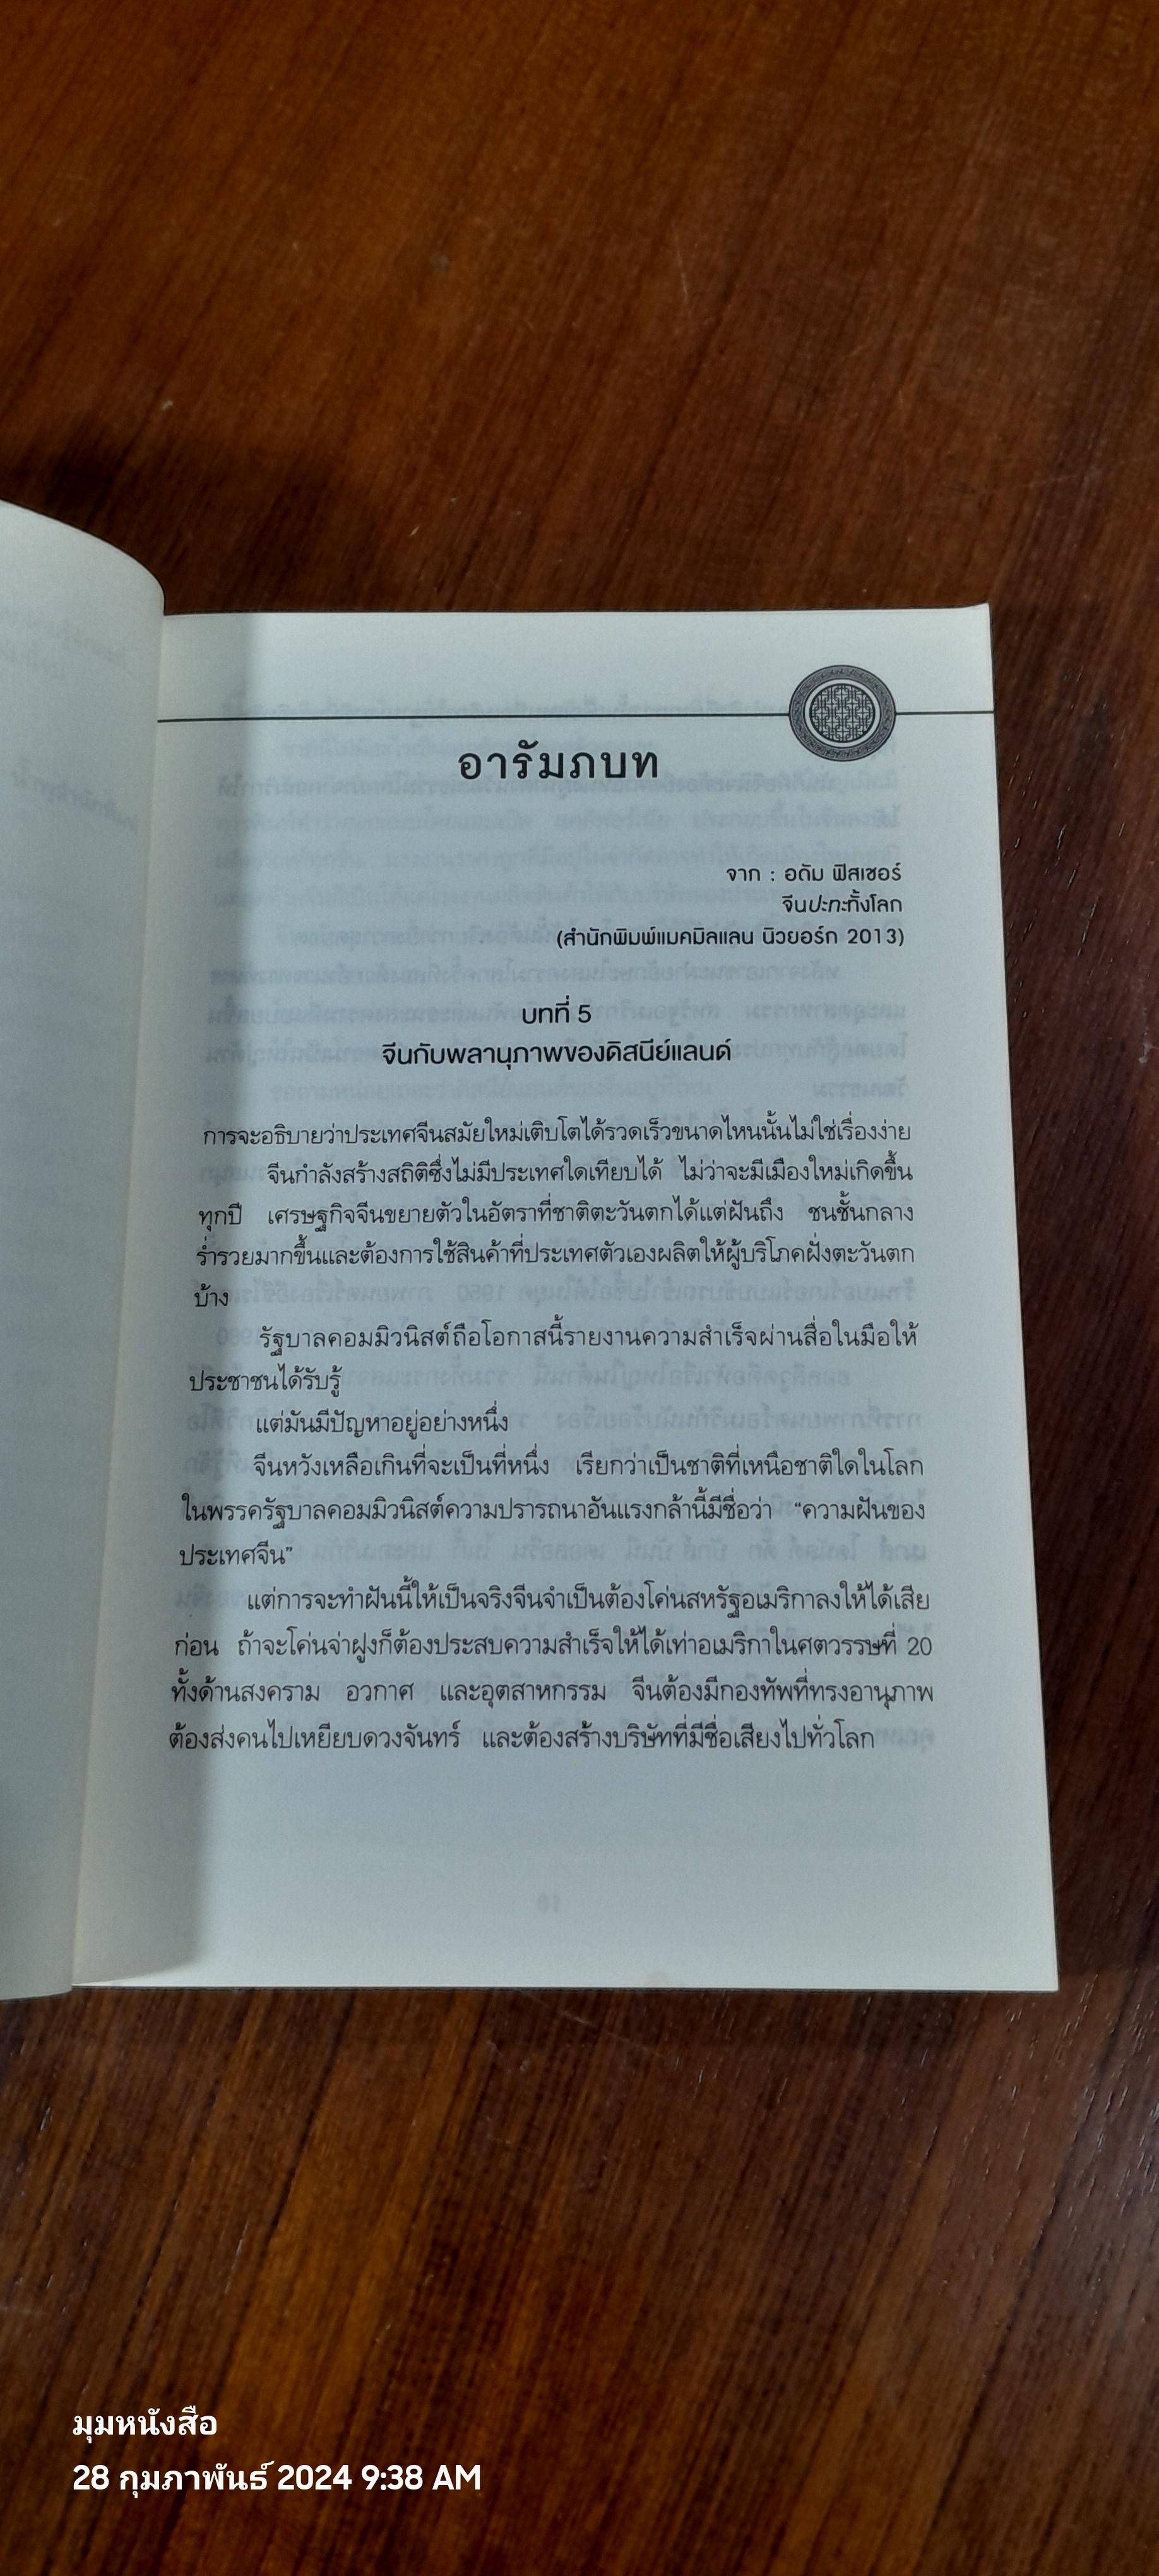 อารัมภบท
จาก : อดัม ฟิสเชอร์
จีนปะทะทั้งโลก
(สำนักพิมพ์แมคมิลแลน นิวยอร์ก 2013)
บทที่ 5
จีนกับพลานุภาพของดิสนีย์แลนด์
การจะอธิบายว่าประเทศจีนสมัยใหม่เติบโตได้รวดเร็วขนาดไหนนั้นไม่ใช่เรื่องง่าย
จีนกำลังสร้างสถิติซึ่งไม่มีประเทศใดเทียบได้ ไม่ว่าจะมีเมืองใหม่เกิดขึ้น
ทุกปี เศรษฐกิจจีนขยายตัวในอัตราที่ชาติตะวันตกได้แต่ฝันถึง ชนชั้นกลาง
ร่ำรวยมากขึ้นและต้องการใช้สินค้าที่ประเทศตัวเองผลิตให้ผู้บริโภคฝั่งตะวันตก
บ้าง
รัฐบาลคอมมิวนิสต์ถือโอกาสนี้รายงานความสำเร็จผ่านสื่อในมือให้
ประชาชนได้รับรู้
แต่มันมีปัญหาอยู่อย่างหนึ่ง
จีนหวังเหลือเกินที่จะเป็นที่หนึ่ง เรียกว่าเป็นชาติที่เหนือชาติใดในโลก
ในพรรครัฐบาลคอมมิวนิสต์ความปรารถนาอันแรงกล้านี้มีชื่อว่า “ความฝันของ
ประเทศจีน”
แต่การจะทำฝันนี้ให้เป็นจริงจีนจำเป็นต้องโค่นสหรัฐอเมริกาลงให้ได้เสีย
ก่อน ถ้าจะโค่นจ่าฝูงก็ต้องประสบความสำเร็จให้ได้เท่าอเมริกาในศตวรรษที่ 20
ทั้งด้านสงคราม อวกาศ และอุตสาหกรรม จีนต้องมีกองทัพที่ทรงอานุภาพ
ต้องส่งคนไปเหยียบดวงจันทร์ และต้องสร้างบริษัทที่มีชื่อเสียงไปทั่วโลก
มุมหนังสือ
28 กุมภาพันธ์ 2024 9:38 AM